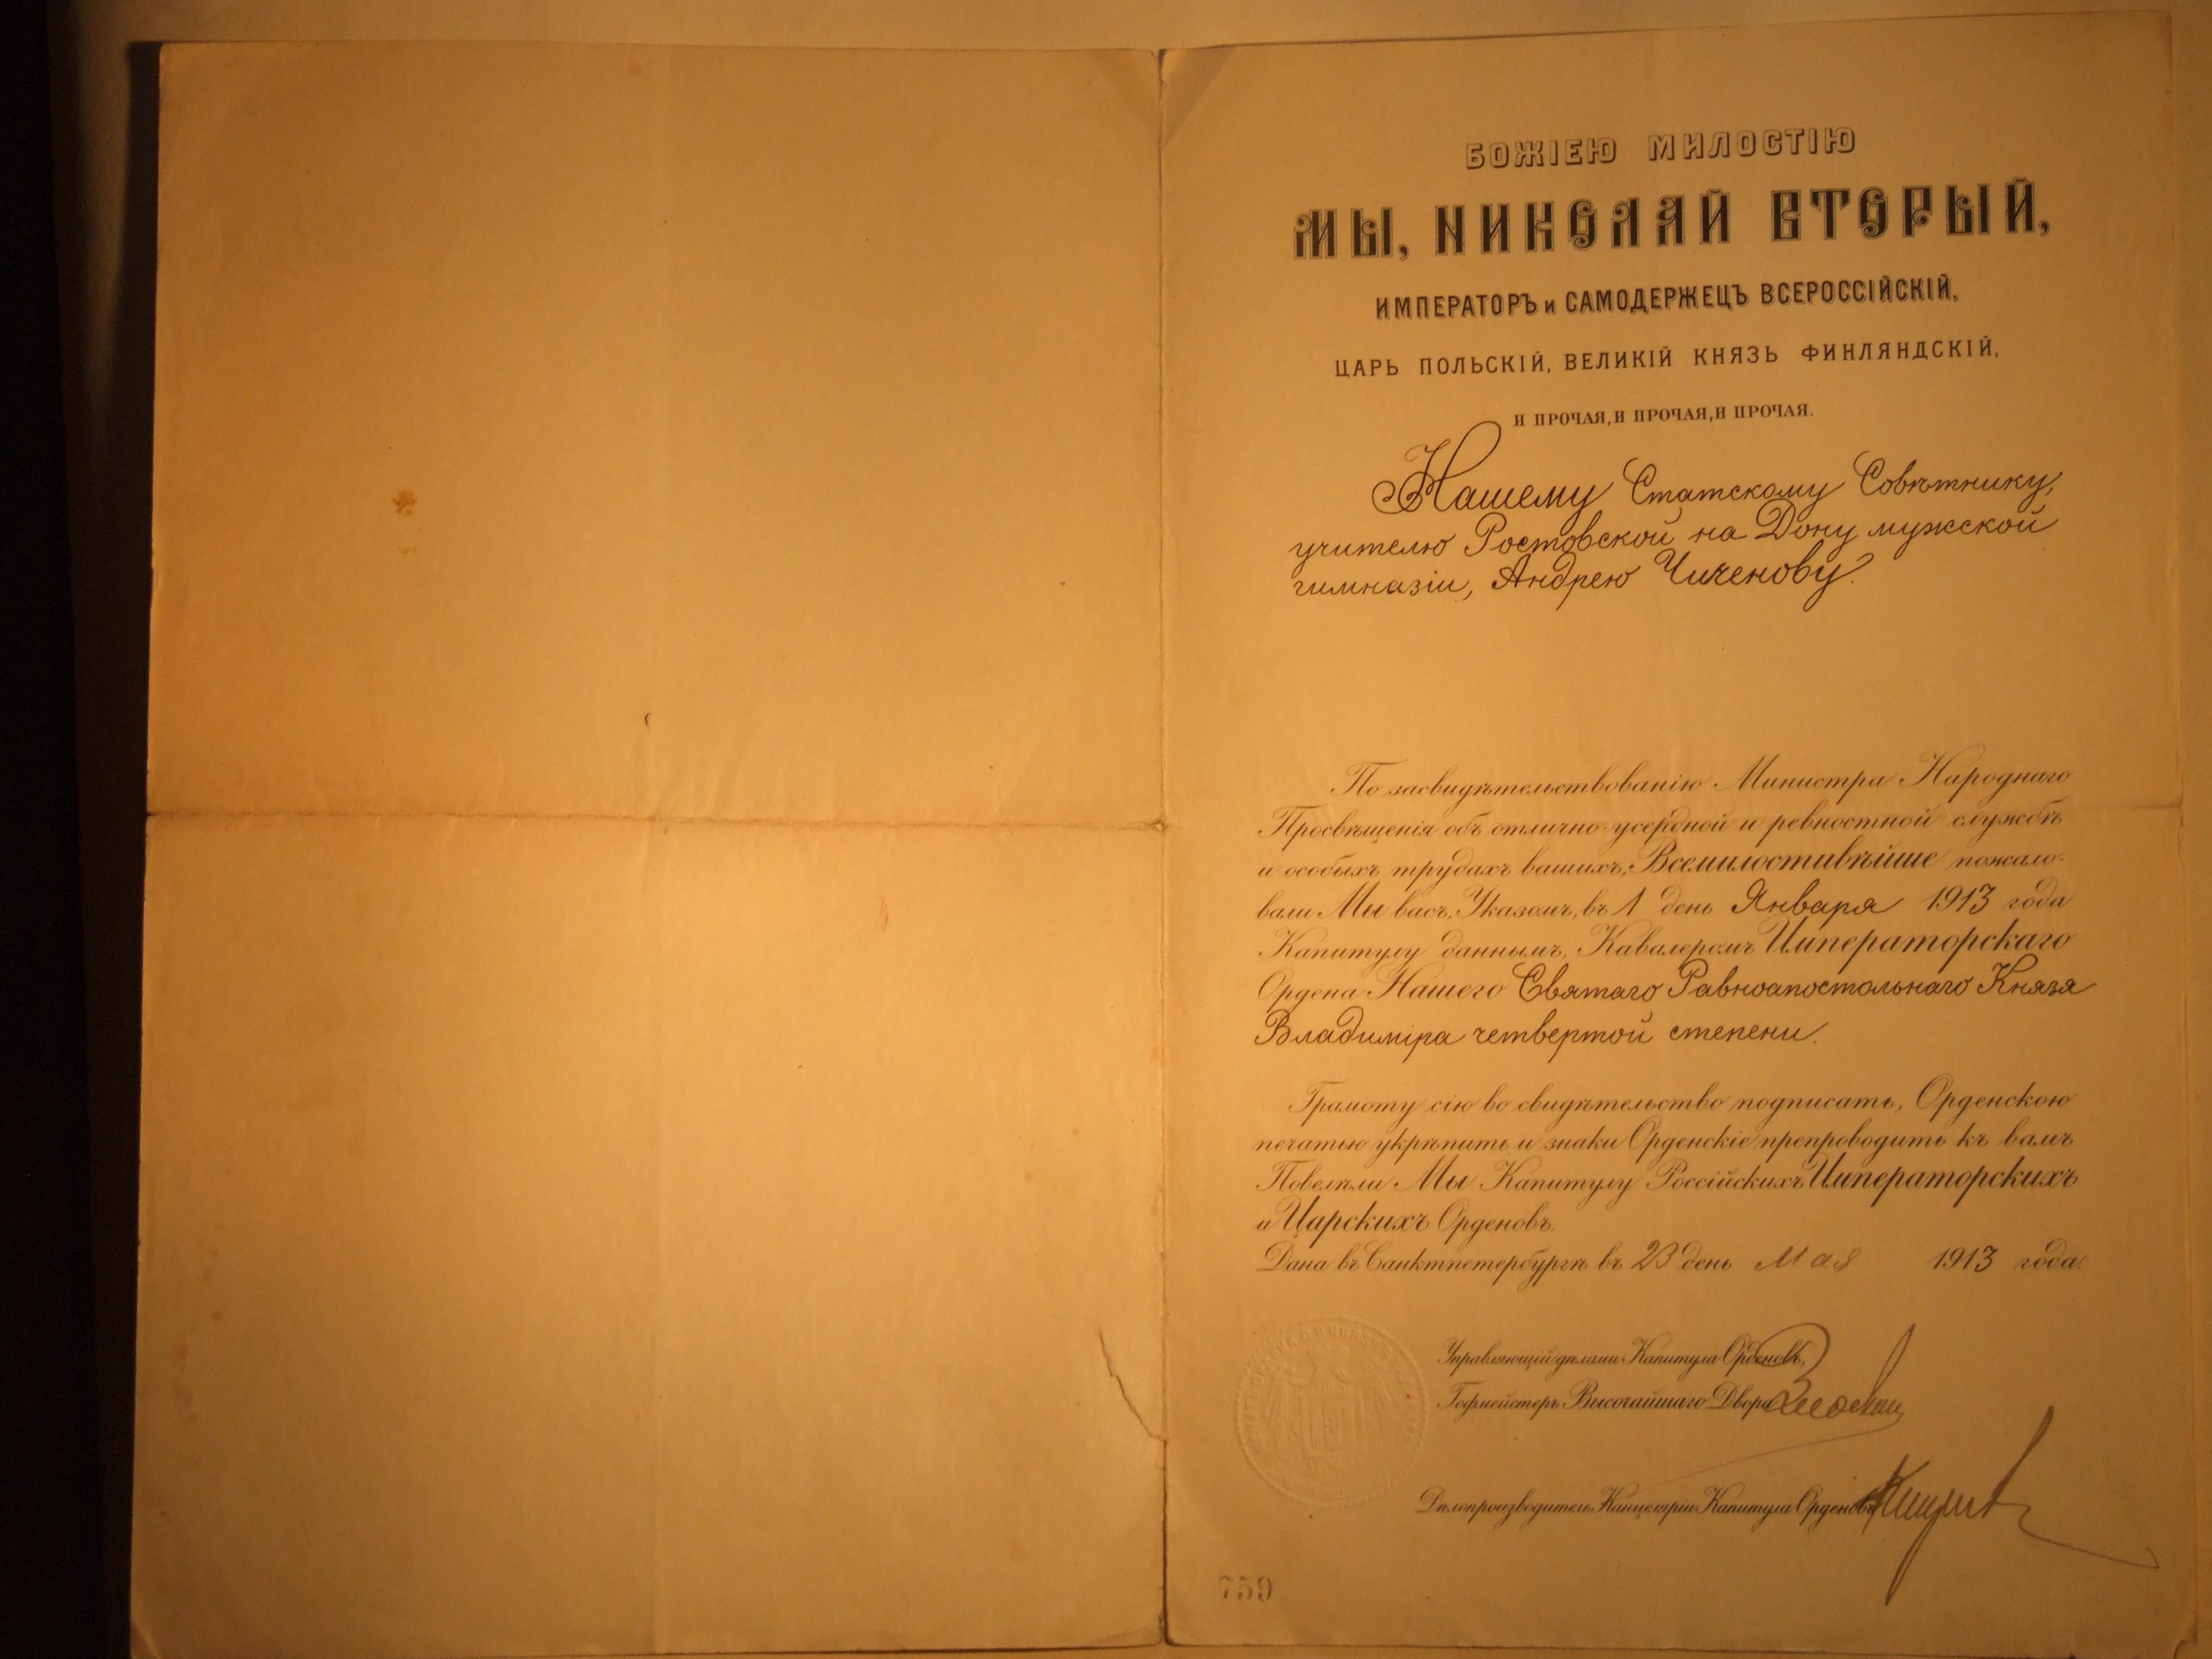 БОЖІЕЮ МИЛОСТІЮ
МЫ, НИКОЛАЙ ВТОРЫЙ,
ИМПЕРАТОРЪ и САМОДЕРЖЕЦЪ ВСЕРОССІЙСКІЙ,
ЦАРЬ ПОЛЬСКІЙ, ВЕЛИКІЙ КНЯЗЬ ФИНЛЯНДСКІЙ,
И ПРОЧАЯ, И ПРОЧАЯ, И ПРОЧАЯ.
Нашему Статскому Совѣтнику,
учителю Ростовской на Дону мужской
гимназіи, Андрею Чиченову.
По засвидѣтельствованію Министра Народнаго
Просвѣщенія объ отлично-усердной и ревностной службѣ
и особыхъ трудахъ вашихъ, Всемилостивѣйше пожало-
вали Мы васъ, Указомъ, въ 1 день Января 1913 года
Капитулу даннымъ, Кавалеромъ Императорскаго
Ордена Нашего Святаго Равноапостольнаго Князя
Владиміра четвертой степени.
Грамоту сію во свидѣтельство подписать, Орденскою
печатью укрѣпить и знаки Орденскіе препроводить къ вамъ
Повелѣли Мы Капитулу Россійскихъ Императорскихъ
и Царскихъ Орденовъ.
Дана въ Санктпетербургѣ въ 23 день Мая 1913 года.
Управляющій дѣлами Капитула Орденовъ,
Гофмейстеръ Высочайшаго Двора
Дѣлопроизводитель Канцеляріи Капитула Орденовъ
759